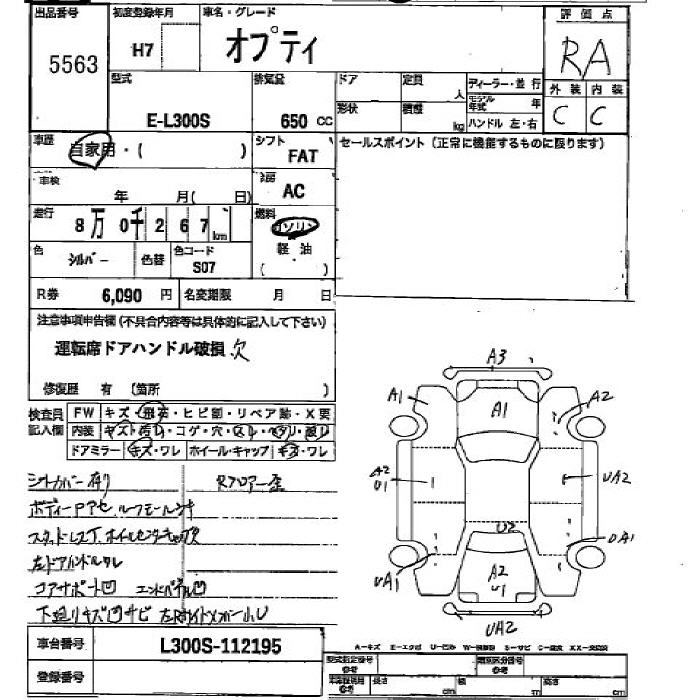 出品番号 初度登録年月 車名・グレード 評価点
5563 H7 オプティ RA
型式 排気量 ドア 定員 人 ディーラー・並行 外装 内装
E-L300S 650 CC 形状 積載 kg モデル年式 年 C C
ハンドル 左・右
車歴 自家用・( ) シフト FAT セールスポイント(正常に機能するものに限ります)
車検 年 月( 日) 冷房 AC
走行 8万0千267km 燃料 ガソリン
軽・油
( )
色 シルバー 色替 色コード S07
R券 6,090 円 名変期限 月 日
注意事項申告欄(不具合内容等は具体的に記入して下さい)
運転席ドアハンドル破損 欠
修復歴 有(箇所 )
検査員記入欄 FW キズ・飛石・ヒビ割・リペア跡・X要
内装 キズ・汚れ・コゲ・穴・スレ・ヘタリ・破レ
ドアミラー キズ・ワレ ホイール・キャップ キズ・ワレ
シートカバー有り Rフロアー歪
ボディーPアセ ルーフモール
スタッドレスT. ホイルセンターキャップ欠
左ドアハンドル
コアサポート凹 エンドパネル凹
下廻りキズ凹サビ
A3
A1 A1 A2
A2
U1 UA2
U2
UA1 UA1
A2
U1
UA2
A-キズ E-エクボ U-凹み W-補修跡 S-サビ C-腐食 XX-交換済
車台番号 L300S-112195
登録番号
型式指定番号 参考 類別区分番号 参考
参考 長さ cm 幅 cm 高さ cm